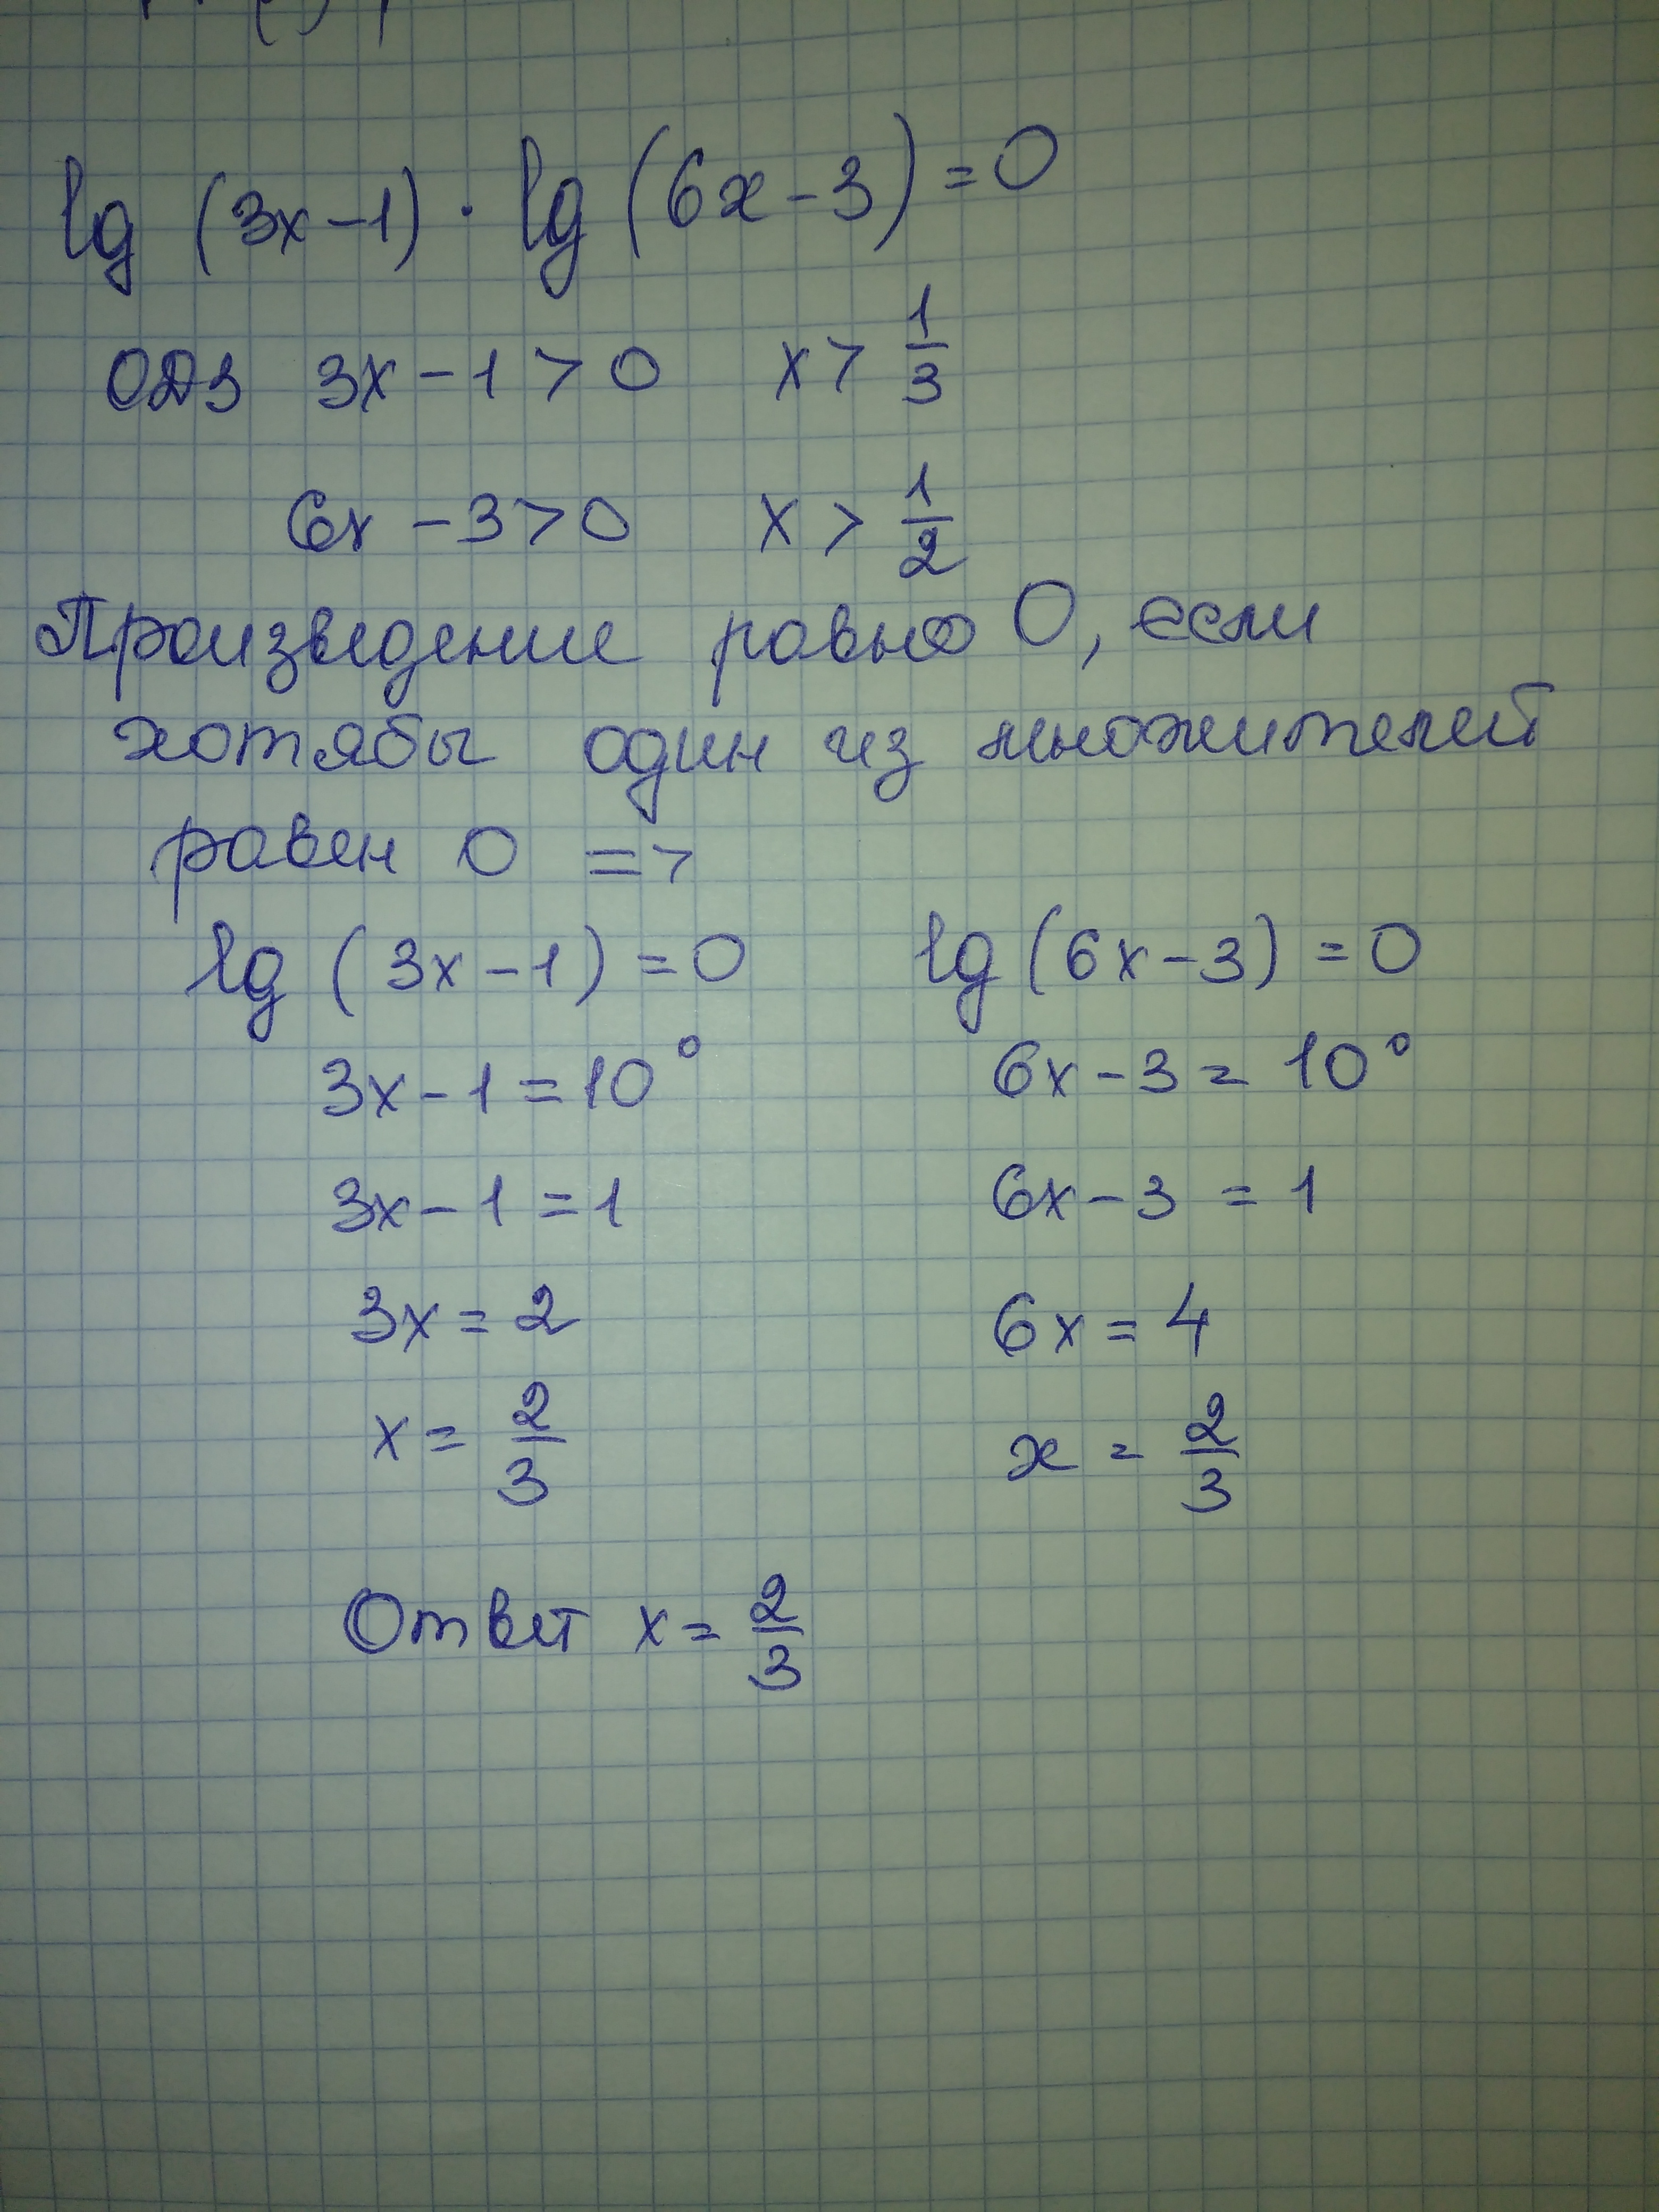 lg (3x-1) · lg (6x-3) = 0
ОДЗ 3x-1>0 x> 1/3
6x-3>0 x> 1/2
Произведение равно 0, если
хотябы один из множителей
равен 0 =>
lg (3x-1) = 0 lg (6x-3) = 0
3x-1=10⁰ 6x-3=10⁰
3x-1=1 6x-3=1
3x=2 6x=4
x= 2/3 x= 2/3
Ответ x= 2/3